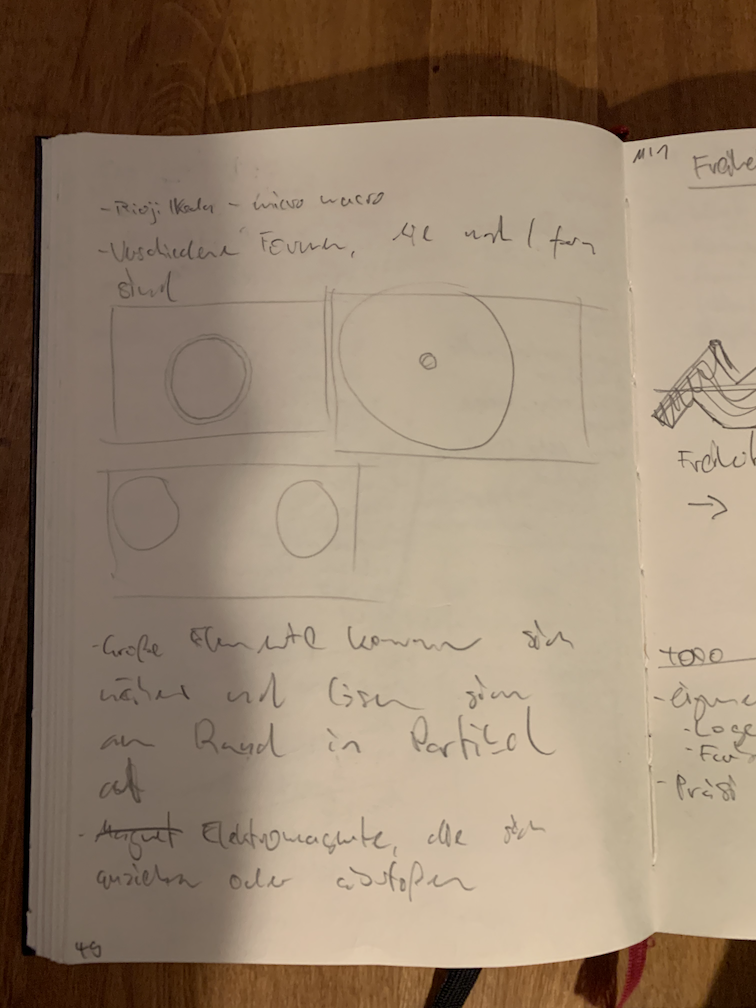 - Rioji Ikeda - micro macro
- Verschiedene Formen, die noch 1 form
sind
- Große Elemente kommen sich
näher und lösen sich
am Rand in Partikel
auf
- Magnet Elektromagnete, die sich
anziehen oder abstoßen
49
Freihei
Freiheit
→
TODO
- Logo
- Präsi